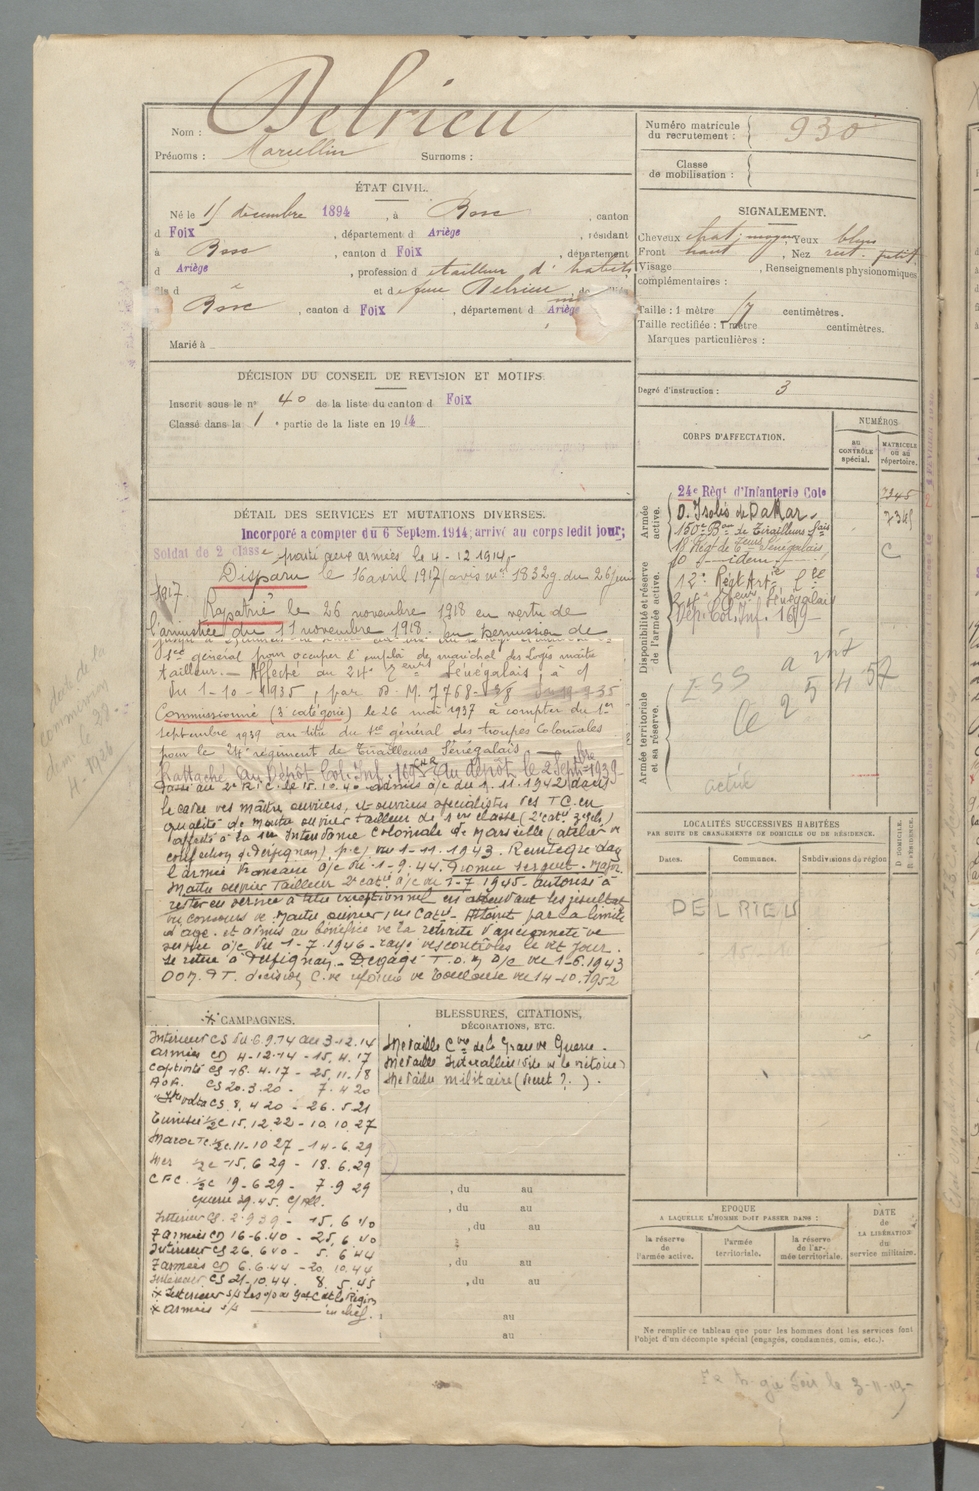 Nom : Delrieu
Prénoms : Marcellin Surnoms :
Numéro matricule du recrutement : 930
Classe de mobilisation :
ÉTAT CIVIL.
Né le 15 décembre 1894, à Bosc, canton
d Foix, département d Ariège, résidant
à Bosc, canton d Foix, département
d Ariège, profession d tailleur d'habits
et de feue Delrieu
à Bosc, canton d Foix, département d Ariège
Marié à
SIGNALEMENT.
Cheveux chat. moyen, Yeux bleus
Front haut, Nez rect. petit
Visage, Renseignements physionomiques
complémentaires :
Taille : 1 mètre 57 centimètres.
Taille rectifiée : 1 mètre centimètres.
Marques particulières :
Degré d'instruction : 3
DÉCISION DU CONSEIL DE REVISION ET MOTIFS.
Inscrit sous le n° 40 de la liste du canton d Foix
Classé dans la 1e partie de la liste en 1914
CORPS D'AFFECTATION.
NUMÉROS
au CONTRÔLE spécial.
MATRICULE ou au répertoire.
Armée active.
24e Régt d'Infanterie Cole
D. Isolés de Dakar
7345
C
Dép. Col. Inf. 169
Disponibilité et réserve de l'armée active.
Armée territoriale et sa réserve.
DÉTAIL DES SERVICES ET MUTATIONS DIVERSES.
Incorporé a compter du 6 Septem. 1914; arrivé au corps ledit jour;
Soldat de 2 classe, passé aux armées le 4-12-1914.
Disparu le 16 avril 1917 (avis n° 18329 du 26 juin
1917.
Rapatrié le 26 novembre 1918 en vertu de
l'armistice du 11 novembre 1918.
général pour occuper l'emploi de maréchal des Logis maître
tailleur. - Affecté au 24e Tirailleurs Sénégalais, à c/
du 1-10-1935, par D. M. 7768
Commissionné (3e catégorie) le 26 mai 1937 à compter du 1er
septembre 1939 au titre du général des troupes Coloniales
pour le 24e régiment de Tirailleurs Sénégalais.
Rattaché au Dépôt Col. Inf. 169 au dépôt le 2 Septbre 1939
Passé au 2e R.I.C. le 15.10.40 - admis à/c du 1.11.1942 dans
le cadre des maîtres ouvriers, et ouvriers spécialistes des T.C. en
qualité de maître ouvrier tailleur de 1ère classe
affecté à la Intendance Coloniale de Marseille (atelier de
confection de Perpignan) du 1-11-1943. Réintégré dans
l'armée Française à/c du 1-9-44. Promu Sergent-Major
Maître ouvrier Tailleur 2e catie à/c du 1-7 1945 - autorisé à
rester en service à titre exceptionnel en attendant les résultats
du concours de Maître ouvrier - Atteint par la limite
d'âge et admis au bénéfice de la retraite d'ancienneté de
service à/c du 1-7-1946 - rayé des contrôles le dit jour.
Se retire à Perpignan - Dégagé T.O.M à/c du 1-6-1943
décision C. de réforme de Toulouse du 14-10-1952
LOCALITÉS SUCCESSIVES HABITÉES
PAR SUITE DE CHANGEMENTS DE DOMICILE OU DE RÉSIDENCE.
Dates. Communes. Subdivisions de région
D. DOMICILE. R. RÉSIDENCE.
DELRIEU
CAMPAGNES.
Intérieur CS du 6.9.14 au 3-12.14
armées CD 4-12-14 - 15.4.17
Captivité CS 16.4.17 - 25.11.18
A.O.F. CS 20.3.20 - 7.4 20
Hte Volta CS 8.4 20 - 26.5 21
Tunisie 1/2c 15.12.22 - 10.10.27
Maroc 1/2c 11-10 27 - 14-6.29
Mer 1/2c 15.6 29 - 18.6.29
C F C 1/2c 19-6 29 - 7.9 29
Guerre 39.45. c/All.
Intérieur CS 2.9 39 - 15.6 40
Z armées CD 16-6.40 - 25.6 40
Intérieur CS 26.6 40 - 5.6 44
Z armées CD 6.6 44 - 20.10.44
Intérieur CS 21.10.44. 8.5.45
BLESSURES, CITATIONS,
DÉCORATIONS, ETC.
Médaille Cve de la Grande Guerre
Médaille Interalliée (dite de la victoire)
Médaille militaire (décret ?).
, du au
, du au
, du au
, du au
, du au
au
au
EPOQUE
A LAQUELLE L'HOMME DOIT PASSER DANS :
la réserve de l'armée active.
l'armée territoriale.
la réserve de l'armée territoriale.
DATE de LA LIBÉRATION du service militaire.
Ne remplir ce tableau que pour les hommes dont les services font
l'objet d'un décompte spécial (engagés, condamnés, omis, etc.).